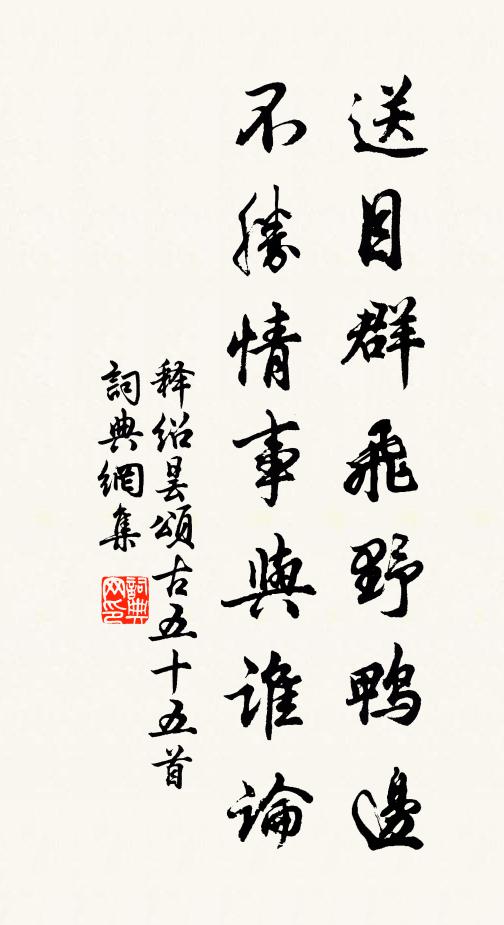 送目群飛野鴨邊
不勝情事與誰論
释紹曇頌古五十五首
詞典網集
詞典网印